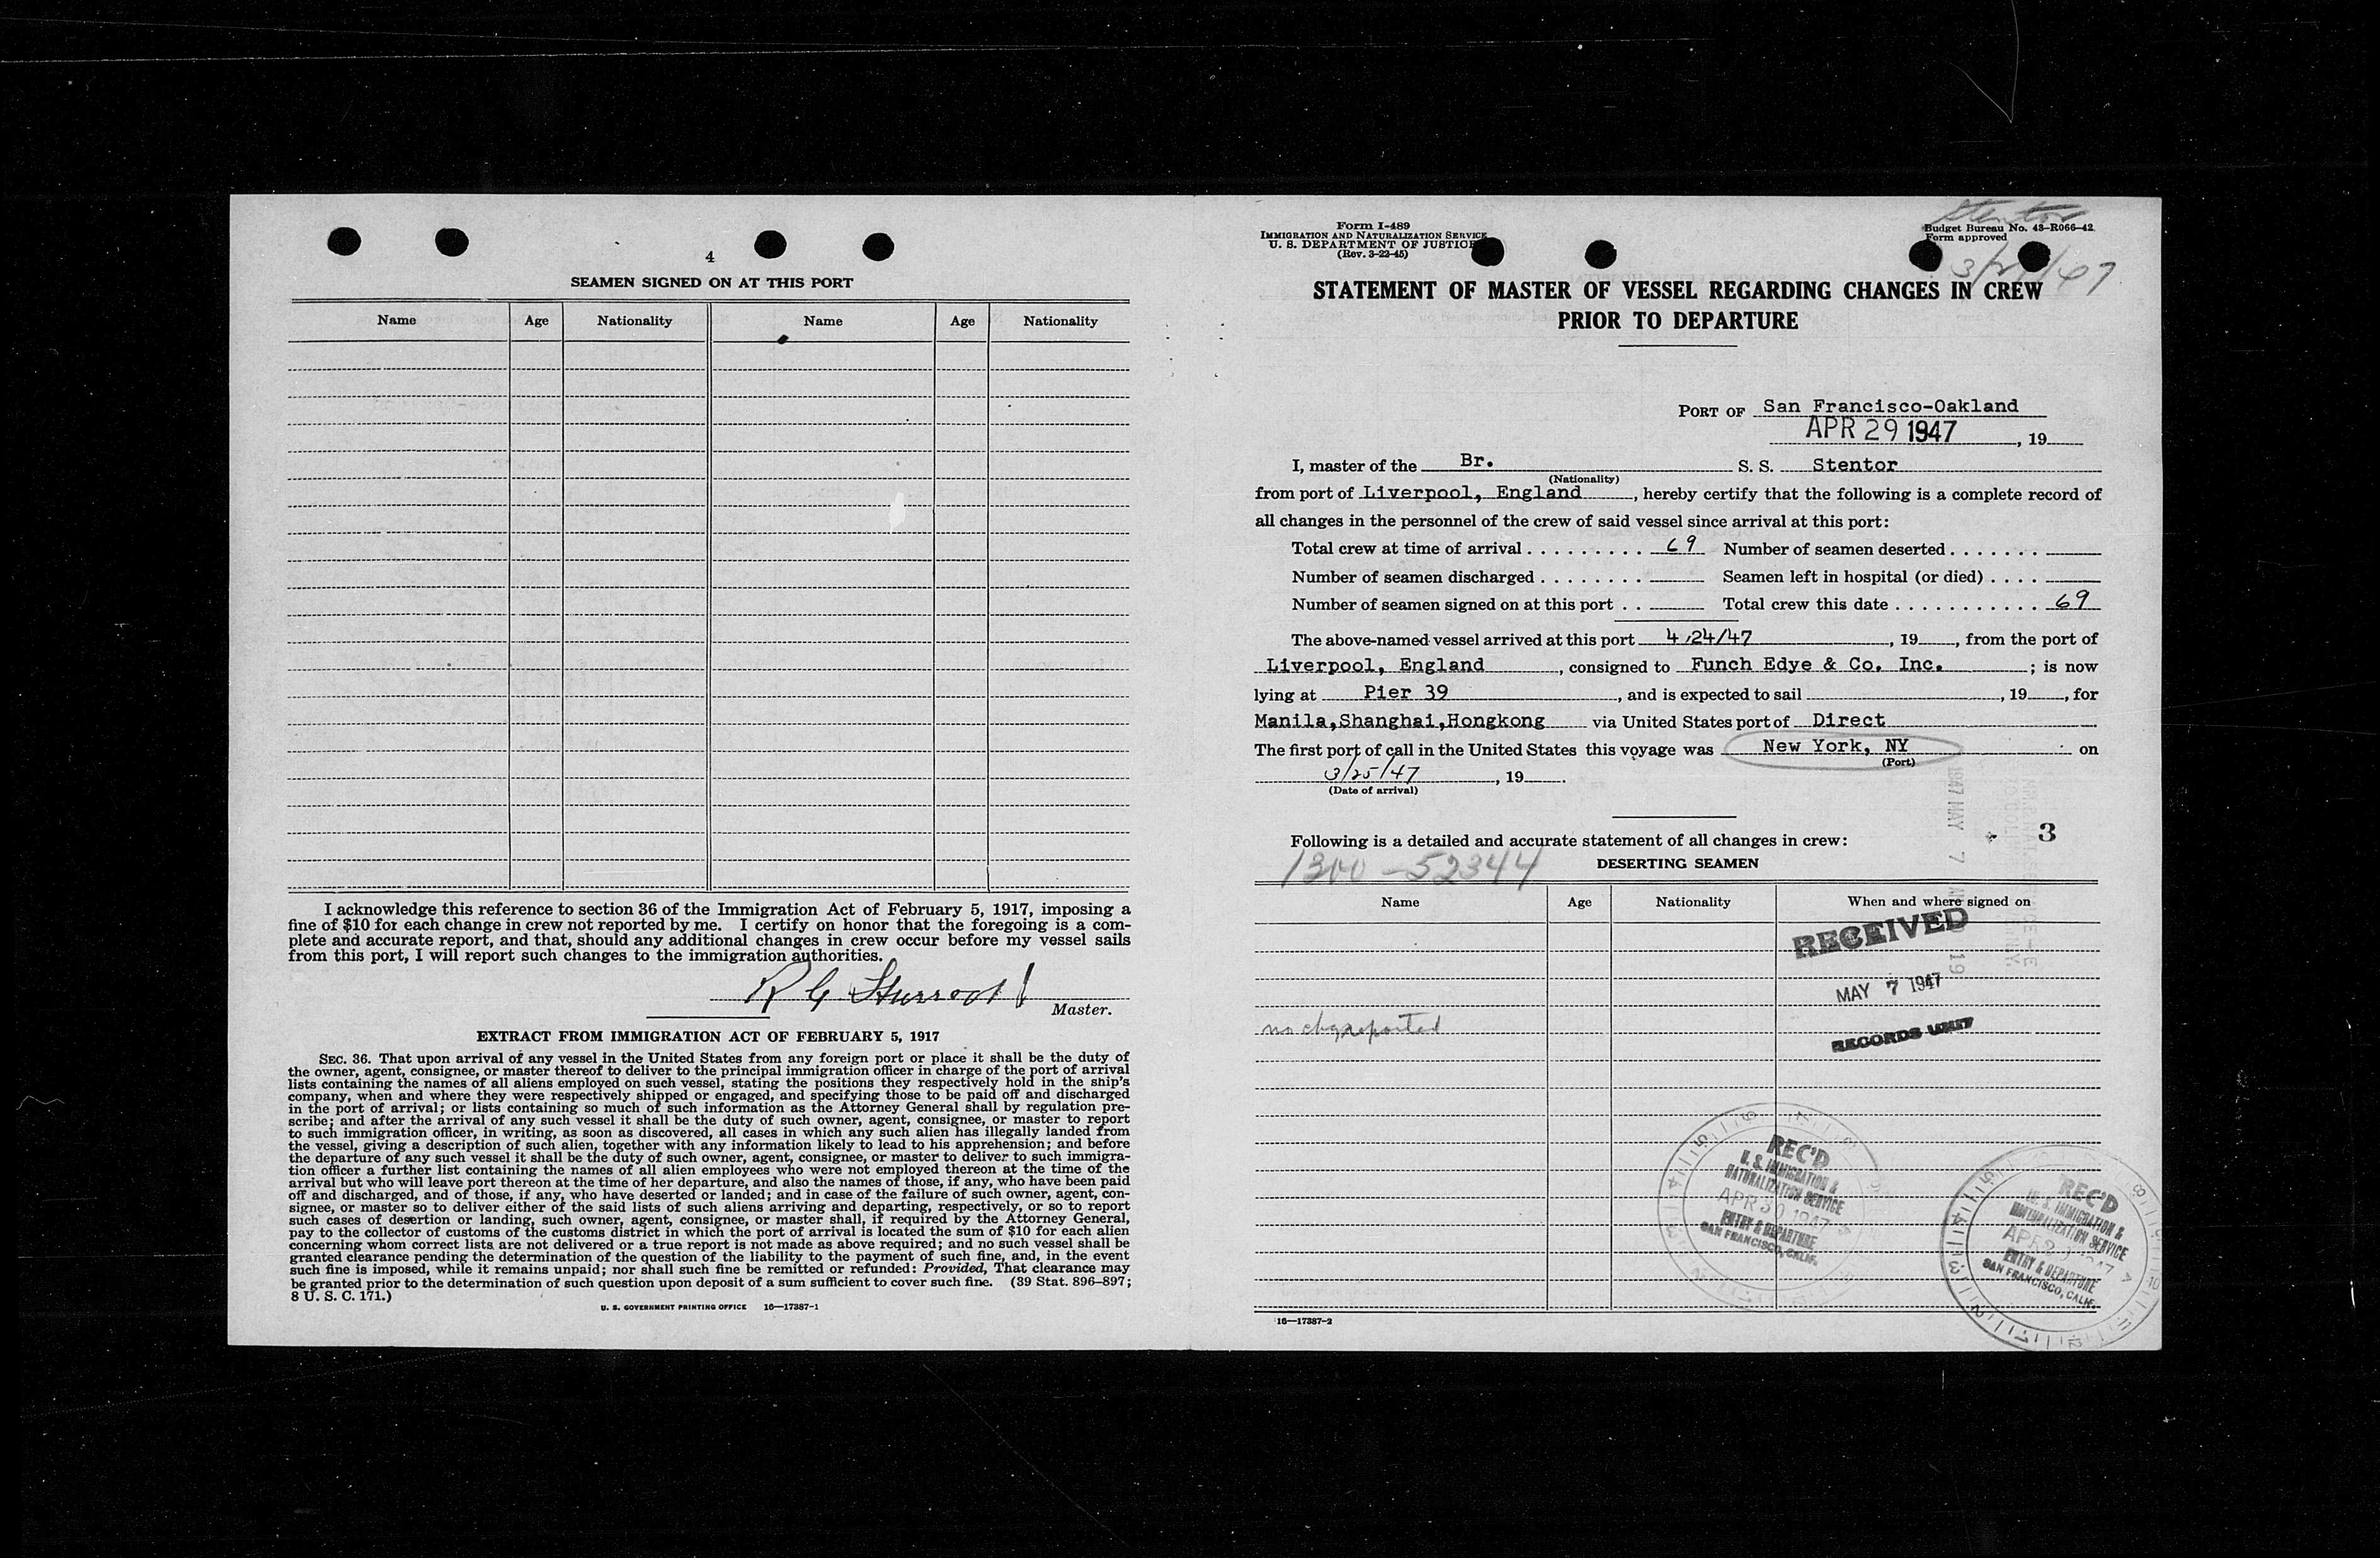 4
SEAMEN SIGNED ON AT THIS PORT
Name Age Nationality Name Age Nationality
I acknowledge this reference to section 36 of the Immigration Act of February 5, 1917, imposing a
fine of $10 for each change in crew not reported by me. I certify on honor that the foregoing is a com-
plete and accurate report, and that, should any additional changes in crew occur before my vessel sails
from this port, I will report such changes to the immigration authorities.
Master.
EXTRACT FROM IMMIGRATION ACT OF FEBRUARY 5, 1917
SEC. 36. That upon arrival of any vessel in the United States from any foreign port or place it shall be the duty of
the owner, agent, consignee, or master thereof to deliver to the principal immigration officer in charge of the port of arrival
lists containing the names of all aliens employed on such vessel, stating the positions they respectively hold in the ship's
company, when and where they were respectively shipped or engaged, and specifying those to be paid off and discharged
in the port of arrival; or lists containing so much of such information as the Attorney General shall by regulation pre-
scribe; and after the arrival of any such vessel it shall be the duty of such owner, agent, consignee, or master to report
to such immigration officer, in writing, as soon as discovered, all cases in which any such alien has illegally landed from
the vessel, giving a description of such alien, together with any information likely to lead to his apprehension; and before
the departure of any such vessel it shall be the duty of such owner, agent, consignee, or master to deliver to such immigra-
tion officer a further list containing the names of all alien employees who were not employed thereon at the time of the
arrival but who will leave port thereon at the time of her departure, and also the names of those, if any, who have been paid
off and discharged, and of those, if any, who have deserted or landed; and in case of the failure of such owner, agent, con-
signee, or master so to deliver either of the said lists of such aliens arriving and departing, respectively, or so to report
such cases of desertion or landing, such owner, agent, consignee, or master shall, if required by the Attorney General,
pay to the collector of customs of the customs district in which the port of arrival is located the sum of $10 for each alien
concerning whom correct lists are not delivered or a true report is not made as above required; and no such vessel shall be
granted clearance pending the determination of the question of the liability to the payment of such fine, and, in the event
such fine is imposed, while it remains unpaid; nor shall such fine be remitted or refunded: Provided, That clearance may
be granted prior to the determination of such question upon deposit of a sum sufficient to cover such fine. (39 Stat. 896-897;
8 U. S. C. 171.)
U. S. GOVERNMENT PRINTING OFFICE 16—17387-1
Form I-489
IMMIGRATION AND NATURALIZATION SERVICE
U. S. DEPARTMENT OF JUSTICE
(Rev. 3-22-45)
Stentor
Budget Bureau No. 43-R066-42
Form approved
STATEMENT OF MASTER OF VESSEL REGARDING CHANGES IN CREW
PRIOR TO DEPARTURE
PORT OF San Francisco-Oakland
APR 29 1947, 19
I, master of the Br. S. S. Stentor
(Nationality)
from port of Liverpool, England, hereby certify that the following is a complete record of
all changes in the personnel of the crew of said vessel since arrival at this port:
Total crew at time of arrival . . . . . . . . . 69 Number of seamen deserted . . . . . . .
Number of seamen discharged . . . . . . . . Seamen left in hospital (or died) . . . .
Number of seamen signed on at this port . . Total crew this date . . . . . . . . . . . . 69
The above-named vessel arrived at this port 4/24/47, 19, from the port of
Liverpool, England, consigned to Funch Edye & Co. Inc.; is now
lying at Pier 39, and is expected to sail , 19, for
Manila,Shanghai,Hongkong via United States port of Direct
The first port of call in the United States this voyage was New York, NY on
(Port)
3/25/47, 19.
(Date of arrival)
1947 MAY 7
3
Following is a detailed and accurate statement of all changes in crew:
DESERTING SEAMEN
Name Age Nationality When and where signed on
RECEIVED
MAY 7 1947
RECORDS UNIT
REC'D
U. S. IMMIGRATION &
NATURALIZATION SERVICE
APR 30 1947
ENTRY & DEPARTURE
SAN FRANCISCO, CALIF.
REC'D
U. S. IMMIGRATION &
NATURALIZATION SERVICE
ENTRY & DEPARTURE
SAN FRANCISCO, CALIF.
16—17387-2